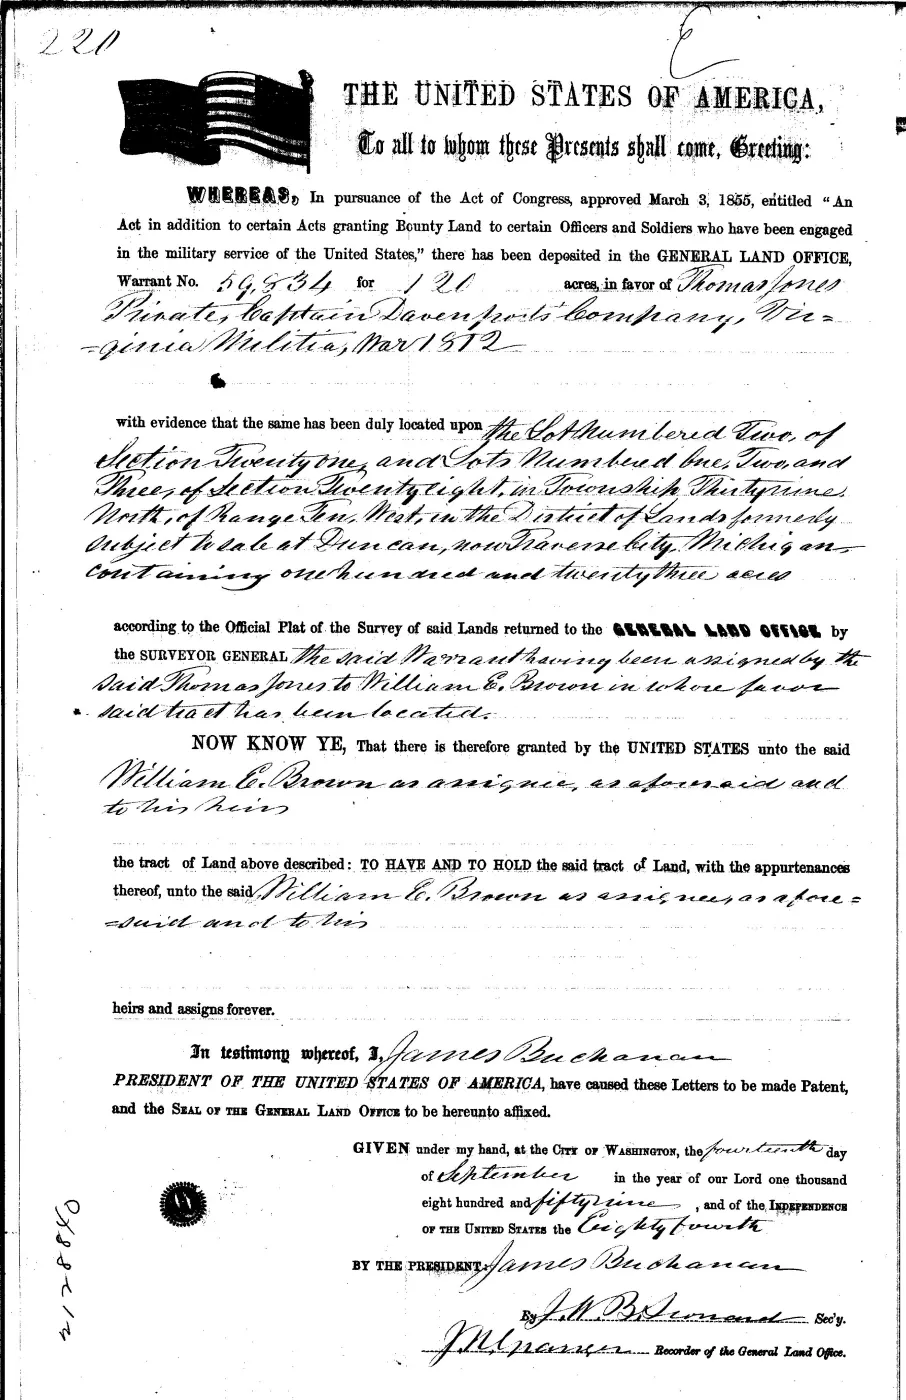 220
THE UNITED STATES OF AMERICA,
To all to whom these Presents shall come, Greeting:
WHEREAS, In pursuance of the Act of Congress, approved March 3, 1855, entitled "An
Act in addition to certain Acts granting Bounty Land to certain Officers and Soldiers who have been engaged
in the military service of the United States," there has been deposited in the GENERAL LAND OFFICE,
Warrant No. 59,834 for 120 acres, in favor of Thomas Jones
Private, Captain Davenport's Company, Vir=
=ginia Militia, War 1812
with evidence that the same has been duly located upon the Lot Numbered Two, of
Section Twenty one, and Lots Numbered One, Two, and
Three, of Section Twenty eight, in Township Thirty nine
North, of Range Ten, West, in the District of Lands formerly
subject to sale at Duncan, now Traverse City, Michigan,
containing one hundred and twenty three acres
according to the Official Plat of the Survey of said Lands returned to the GENERAL LAND OFFICE by
the SURVEYOR GENERAL the said Warrant having been assigned by the
said Thomas Jones to William E. Brown in whose favor
said tract has been located.
NOW KNOW YE, That there is therefore granted by the UNITED STATES unto the said
William E. Brown as assignee, as aforesaid and
to his heirs
the tract of Land above described: TO HAVE AND TO HOLD the said tract of Land, with the appurtenances
thereof, unto the said William E. Brown as assignee, as afore=
=said and to his
heirs and assigns forever.
In testimony whereof, I, James Buchanan
PRESIDENT OF THE UNITED STATES OF AMERICA, have caused these Letters to be made Patent,
and the SEAL OF THE GENERAL LAND OFFICE to be hereunto affixed.
GIVEN under my hand, at the CITY OF WASHINGTON, the fourteenth day
of September in the year of our Lord one thousand
eight hundred and fifty nine, and of the INDEPENDENCE
OF THE UNITED STATES the Eighty fourth
BY THE PRESIDENT: James Buchanan
By J. W. B. Leonard Sec'y.
J. N. Granger Recorder of the General Land Office.
212880